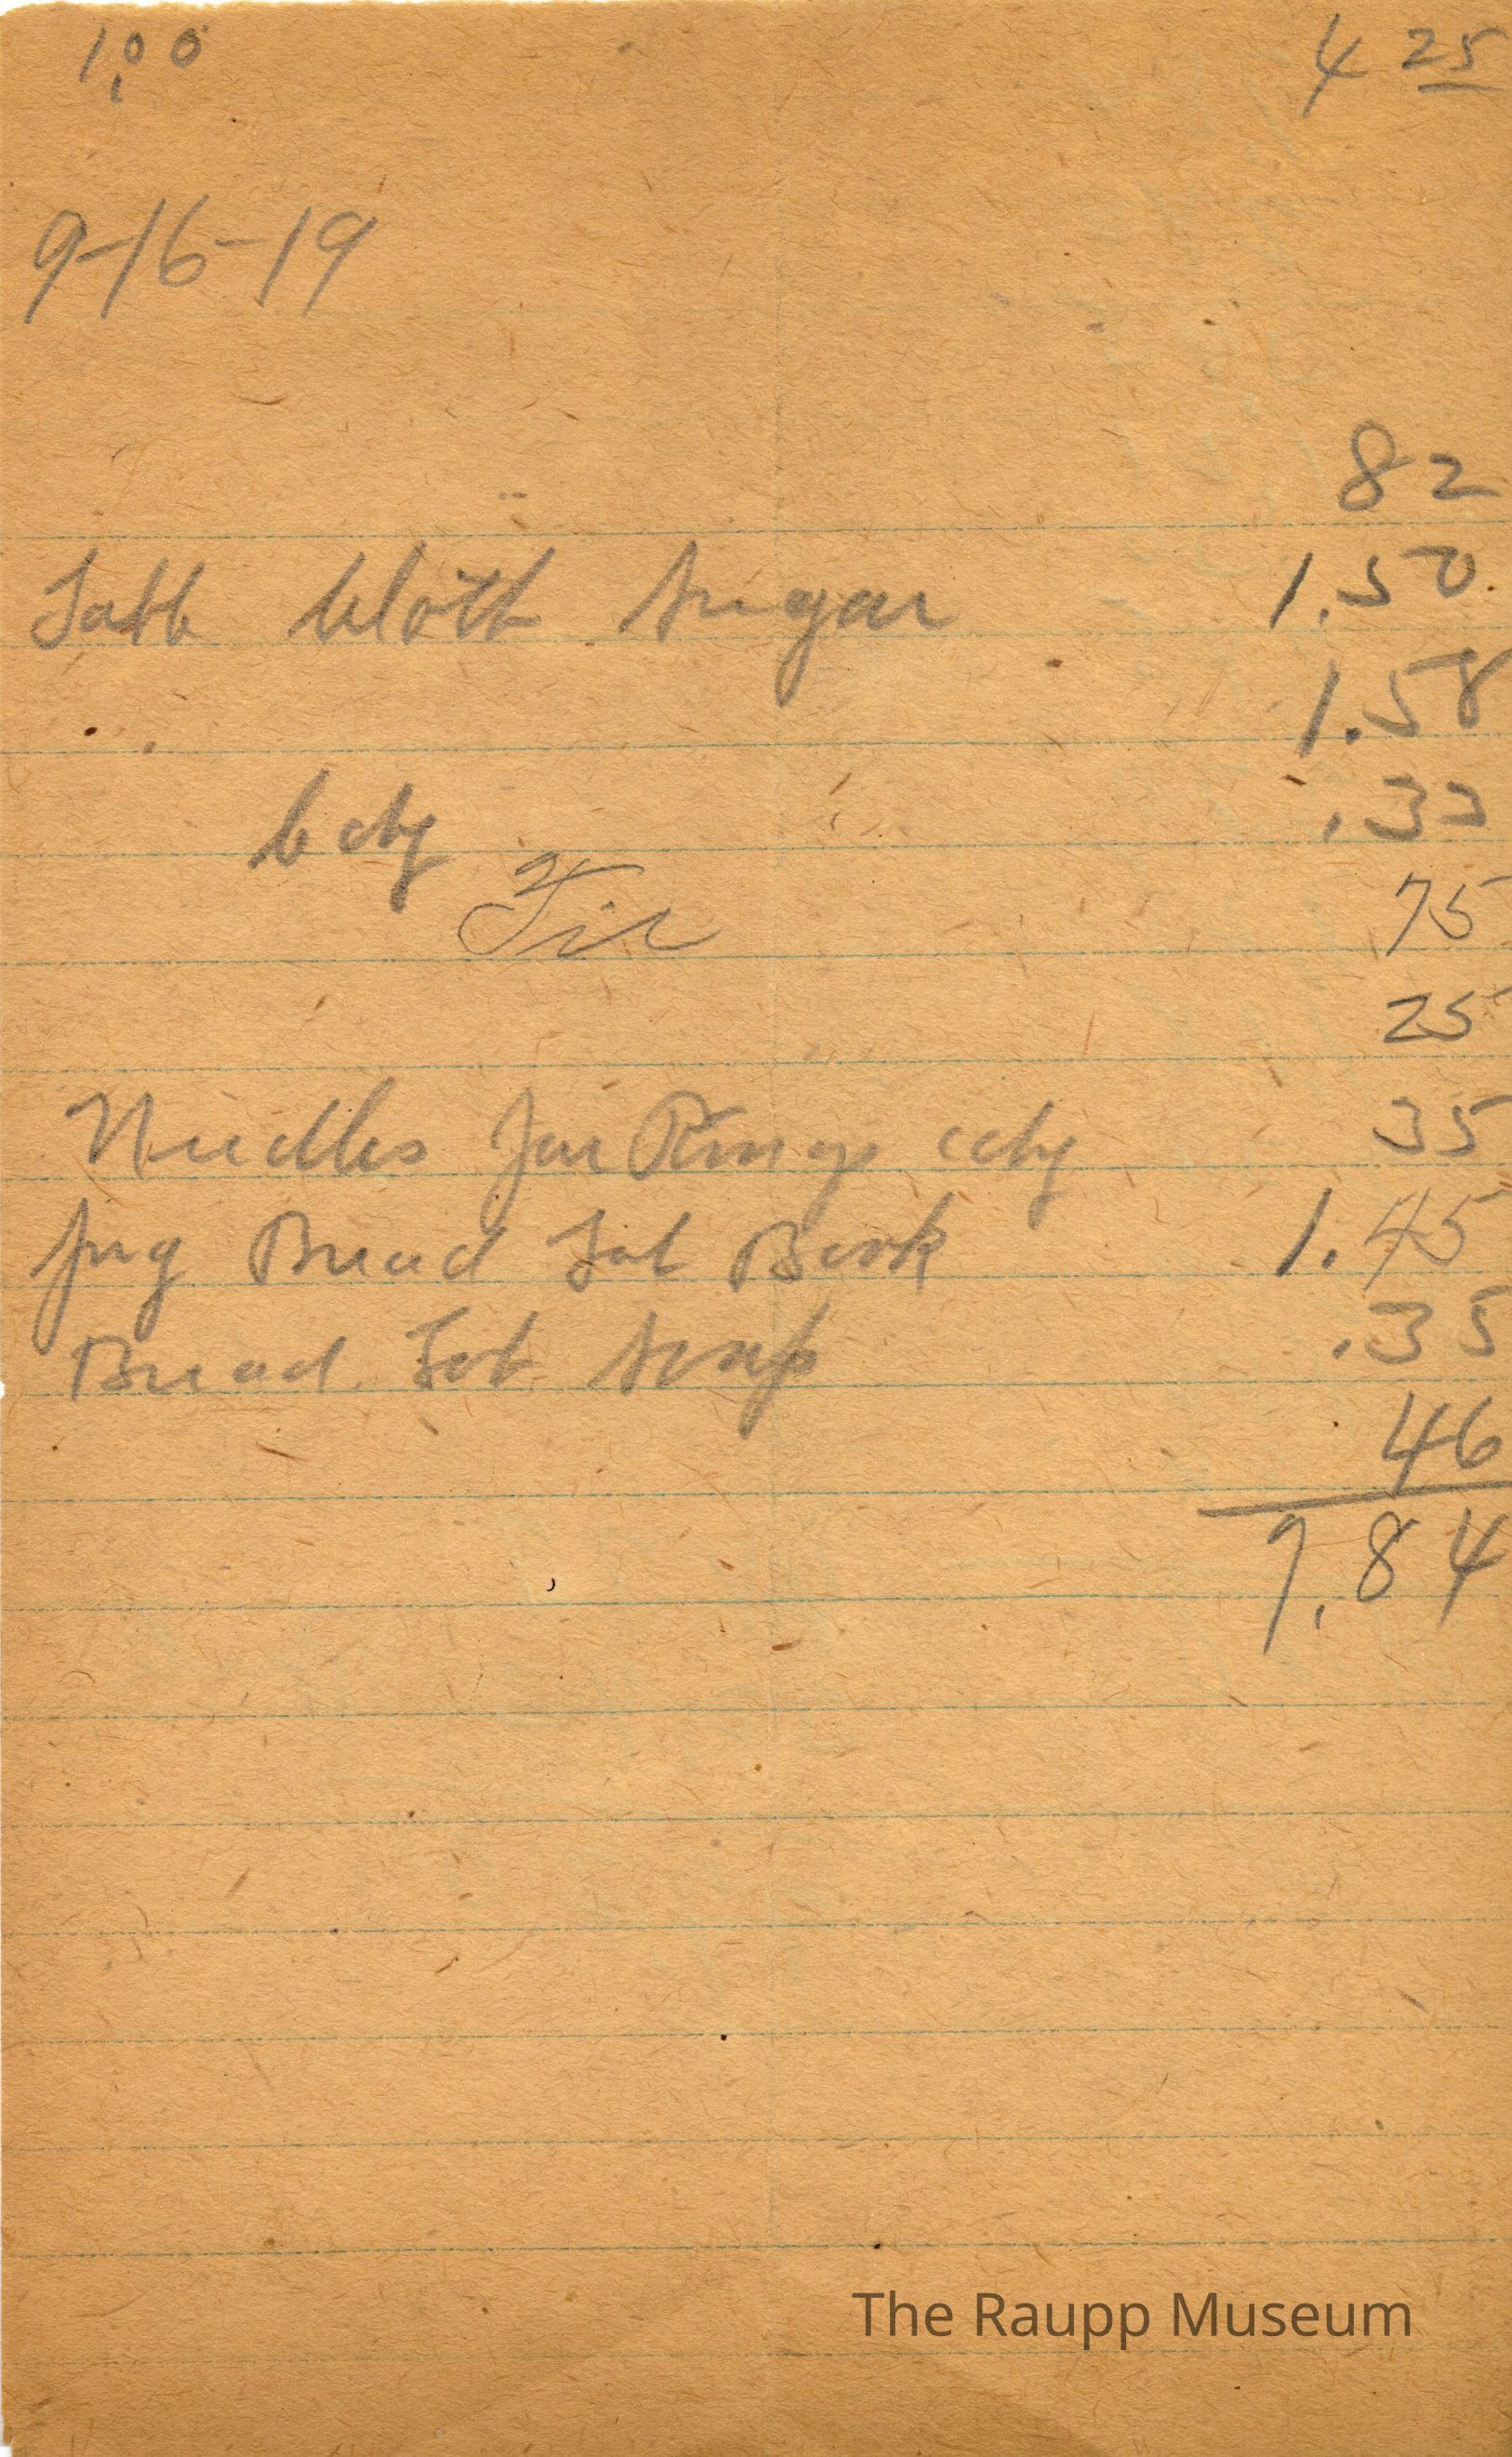 1,00 4 25
9-16-19
82
Cloth Sugar 1.50
1.58
cdy .33
75
25
Needles Jar Rings cdy 35
Jug Bread Tob Book 1.45
Bread. Tob. Soap .35
46
7.84
The Raupp Museum